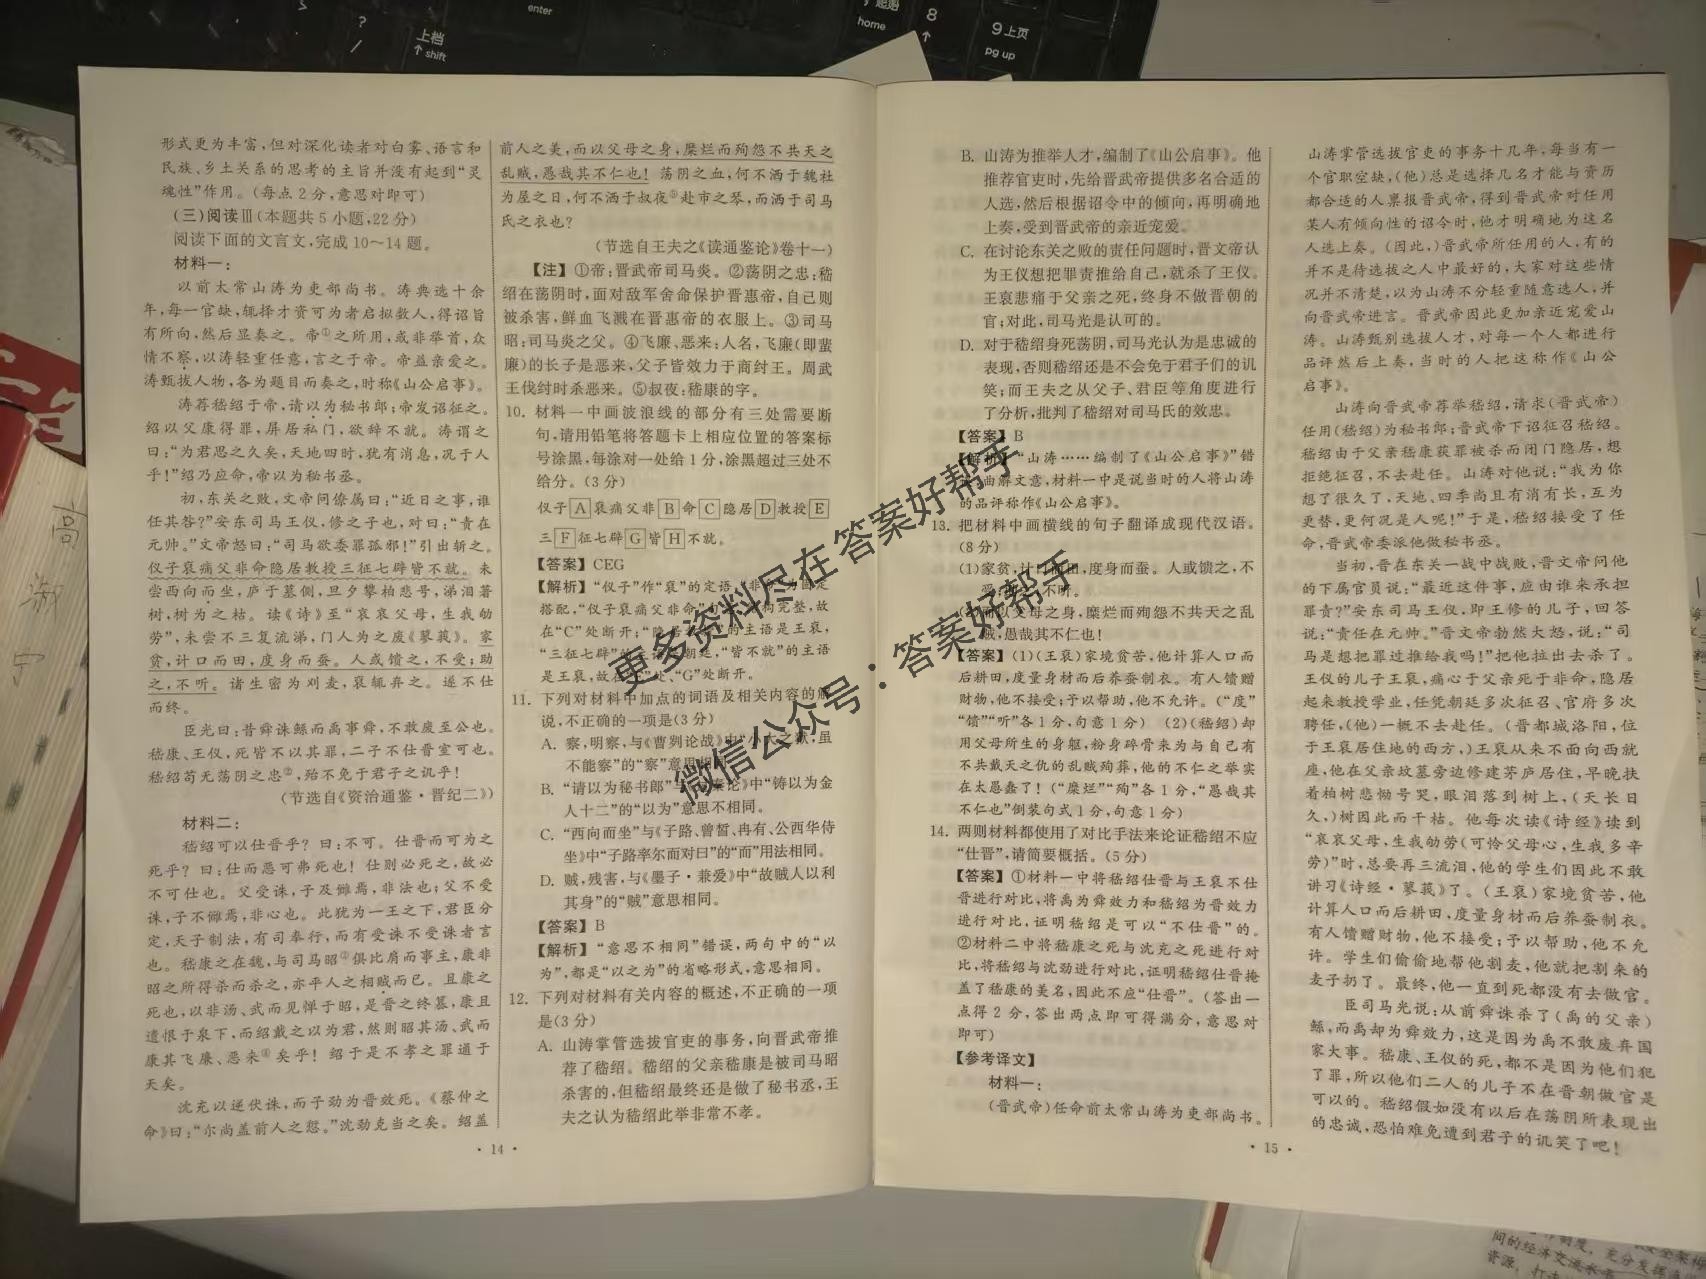 形式更为丰富，但对深化读者对白雾、语言和
民族、乡土关系的思考的主旨并没有起到“灵
魂性”作用。（每点2分，意思对即可）
（三）阅读Ⅲ（本题共5小题，22分）
阅读下面的文言文，完成10～14题。
材料一：
以前太常山涛为吏部尚书。涛典选十余
年，每一官缺，辄择才资可为者启拟数人，得诏旨
有所向，然后显奏之。帝①之所用，或非举首，众
情不察，以涛轻重任意，言之于帝。帝益亲爱之。
涛甄拔人物，各为题目而奏之，时称《山公启事》。
涛荐嵇绍于帝，请以为秘书郎；帝发诏征之。
绍以父康得罪，屏居私门，欲辞不就。涛谓之
曰：“为君思之久矣，天地四时，犹有消息，况于人
乎！”绍乃应命，帝以为秘书丞。
初，东关之败，文帝问僚属曰：“近日之事，谁
任其咎？”安东司马王仪，修之子也，对曰：“责在
元帅。”文帝怒曰：“司马欲委罪孤邪！”引出斩之。
仪子裒痛父非命隐居教授三征七辟皆不就。未
尝西向而坐，庐于墓侧，旦夕攀柏悲号，涕泪著
树，树为之枯。读《诗》至“哀哀父母，生我劬
劳”，未尝不三复流涕，门人为之废《蓼莪》。家
贫，计口而田，度身而蚕。人或馈之，不受；助
之，不听。诸生密为刈麦，裒辄弃之。遂不仕
而终。
臣光曰：昔舜诛鲧而禹事舜，不敢废至公也。
嵇康、王仪，死皆不以其罪，二子不仕晋室可也。
嵇绍苟无荡阴之忠②，殆不免于君子之讥乎！
（节选自《资治通鉴·晋纪二》）
材料二：
嵇绍可以仕晋乎？曰：不可。仕晋而可为之
死乎？曰：仕而恶可弗死也！仕则必死之，故必
不可仕也。父受诛，子仇焉，非法也；父不受
诛，子不雠焉，非心也。此犹为一王之下，君臣分
定，天子制法，有司奉行，而有受诛不受诛者言
也。嵇康之在魏，与司马昭③俱比肩而事主，康非
昭之所得杀而杀之，亦平人之相贼而已。且康之
死也，以非汤、武而见惮于昭，是晋之终篡，康且
遗恨于泉下，而绍戴之以为君，然则昭其汤、武而
康其飞廉、恶来④矣乎！绍于是不孝之罪通于
天矣。
沈充以逆伏诛，而子劲为晋效死。《蔡仲之
命》曰：“尔尚盖前人之愆。”沈劲克当之矣。绍盖
前人之美，而以父母之身，糜烂而殉怨不共天之
乱贼，愚哉其不仁也！荡阴之血，何不洒于魏社
为屋之日，何不洒于叔夜⑤赴市之琴，而洒于司马
氏之衣也？
（节选自王夫之《读通鉴论》卷十一）
【注】①帝：晋武帝司马炎。②荡阴之忠：嵇
绍在荡阴时，面对敌军舍命保护晋惠帝，自己则
被杀害，鲜血飞溅在晋惠帝的衣服上。③司马
昭：司马炎之父。④飞廉、恶来：人名，飞廉（即蜚
廉）的长子是恶来，父子皆效力于商纣王。周武
王伐纣时杀恶来。⑤叔夜：嵇康的字。
10. 材料一中画波浪线的部分有三处需要断
句，请用铅笔将答题卡上相应位置的答案标
号涂黑，每涂对一处给1分，涂黑超过三处不
给分。（3分）
仪子A裒痛父非B命C隐居D教授E
三F征七辟G皆H不就。
【答案】CEG
【解析】“仪子”作“裒”的定语，“非命”为固定
搭配，“仪子裒痛父非命”句子结构完整，故
在“C”处断开；“隐居教授”的主语是王裒，
“三征七辟”的主语是朝廷，“皆不就”的主语
是王裒，故在“E”处、“G”处断开。
11. 下列对材料中加点的词语及相关内容的解
说，不正确的一项是（3分）
A. 察，明察，与《曹刿论战》中“小大之狱，虽
不能察”的“察”意思相同。
B. “请以为秘书郎”与《过秦论》中“铸以为金
人十二”的“以为”意思不相同。
C. “西向而坐”与《子路、曾皙、冉有、公西华侍
坐》中“子路率尔而对曰”的“而”用法相同。
D. 贼，残害，与《墨子·兼爱》中“故贼人以利
其身”的“贼”意思相同。
【答案】B
【解析】“意思不相同”错误，两句中的“以
为”，都是“以之为”的省略形式，意思相同。
12. 下列对材料有关内容的概述，不正确的一项
是（3分）
A. 山涛掌管选拔官吏的事务，向晋武帝推
荐了嵇绍。嵇绍的父亲嵇康是被司马昭
杀害的，但嵇绍最终还是做了秘书丞，王
夫之认为嵇绍此举非常不孝。
· 14 ·
B. 山涛为推举人才，编制了《山公启事》。他
推荐官吏时，先给晋武帝提供多名合适的
人选，然后根据诏令中的倾向，再明确地
上奏，受到晋武帝的亲近宠爱。
C. 在讨论东关之败的责任问题时，晋文帝认
为王仪想把罪责推给自己，就杀了王仪。
王裒悲痛于父亲之死，终身不做晋朝的
官；对此，司马光是认可的。
D. 对于嵇绍身死荡阴，司马光认为是忠诚的
表现，否则嵇绍还是不会免于君子们的讥
笑；而王夫之从父子、君臣等角度进行
了分析，批判了嵇绍对司马氏的效忠。
【答案】B
【解析】“山涛……编制了《山公启事》”错
曲解文意，材料一中是说当时的人将山涛
的品评称作《山公启事》。
13. 把材料中画横线的句子翻译成现代汉语。
（8分）
（1）家贫，计口而田，度身而蚕。人或馈之，不
受；助之，不听。
（2）而以父母之身，糜烂而殉怨不共天之乱
贼，愚哉其不仁也！
【答案】（1）（王裒）家境贫苦，他计算人口而
后耕田，度量身材而后养蚕制衣。有人馈赠
财物，他不接受；予以帮助，他不允许。（“度”
“馈”“听”各1分，句意1分） （2）（嵇绍）却
用父母所生的身躯，粉身碎骨来为与自己有
不共戴天之仇的乱贼殉葬，他的不仁之举实
在太愚蠢了！（“糜烂”“殉”各1分，“愚哉其
不仁也”倒装句式1分，句意1分）
14. 两则材料都使用了对比手法来论证嵇绍不应
“仕晋”，请简要概括。（5分）
【答案】①材料一中将嵇绍仕晋与王裒不仕
晋进行对比，将禹为舜效力和嵇绍为晋效力
进行对比，证明嵇绍是可以“不仕晋”的。
②材料二中将嵇康之死与沈充之死进行对
比，将嵇绍与沈劲进行对比，证明嵇绍仕晋掩
盖了嵇康的美名，因此不应“仕晋”。（答出一
点得2分，答出两点即可得满分，意思对
即可）
【参考译文】
材料一：
（晋武帝）任命前太常山涛为吏部尚书。
山涛掌管选拔官吏的事务十几年，每当有一
个官职空缺，（他）总是选择几名才能与资历
都合适的人禀报晋武帝，得到晋武帝对任用
某人有倾向性的诏令时，他才明确地为这名
人选上奏。（因此，）晋武帝所任用的人，有的
并不是待选拔之人中最好的，大家对这些情
况并不清楚，以为山涛不分轻重随意选人，并
向晋武帝进言。晋武帝因此更加亲近宠爱山
涛。山涛甄别选拔人才，对每一个人都进行
品评然后上奏，当时的人把这称作《山公
启事》。
山涛向晋武帝荐举嵇绍，请求（晋武帝）
任用（嵇绍）为秘书郎；晋武帝下诏征召嵇绍。
嵇绍由于父亲嵇康获罪被杀而闭门隐居，想
拒绝征召，不去赴任。山涛对他说：“我为你
想了很久了，天地、四季尚且有消有长，互为
更替，更何况是人呢！”于是，嵇绍接受了任
命，晋武帝委派他做秘书丞。
当初，晋在东关一战中战败，晋文帝问他
的下属官员说：“最近这件事，应由谁来承担
罪责？”安东司马王仪，即王修的儿子，回答
说：“责任在元帅。”晋文帝勃然大怒，说：“司
马是想把罪过推给我吗！”把他拉出去杀了。
王仪的儿子王裒，痛心于父亲死于非命，隐居
起来教授学业，任凭朝廷多次征召、官府多次
聘任，（他）一概不去赴任。（晋都城洛阳，位
于王裒居住地的西方，）王裒从来不面向西就
座，他在父亲坟墓旁边修建茅庐居住，早晚扶
着柏树悲恸号哭，眼泪落到树上，（天长日
久，）树因此而干枯。他每次读《诗经》读到
“哀哀父母，生我劬劳（可怜父母心，生我多辛
劳）”时，总要再三流泪，他的学生们因此不敢
讲习《诗经·蓼莪》了。（王裒）家境贫苦，他
计算人口而后耕田，度量身材而后养蚕制衣。
有人馈赠财物，他不接受；予以帮助，他不允
许。学生们偷偷地帮他割麦，他就把割来的
麦子扔了。最终，他一直到死都没有去做官。
臣司马光说：从前舜诛杀了（禹的父亲）
鲧，而禹却为舜效力，这是因为禹不敢废弃国
家大事。嵇康、王仪的死，都不是因为他们犯
了罪，所以他们二人的儿子不在晋朝做官是
可以的。嵇绍假如没有以后在荡阴所表现出
的忠诚，恐怕难免遭到君子的讥笑了吧！
· 15 ·
更多资料尽在答案好帮手
微信公众号：答案好帮手
enter
上档
shift
起始
home
8
9上页
pg up